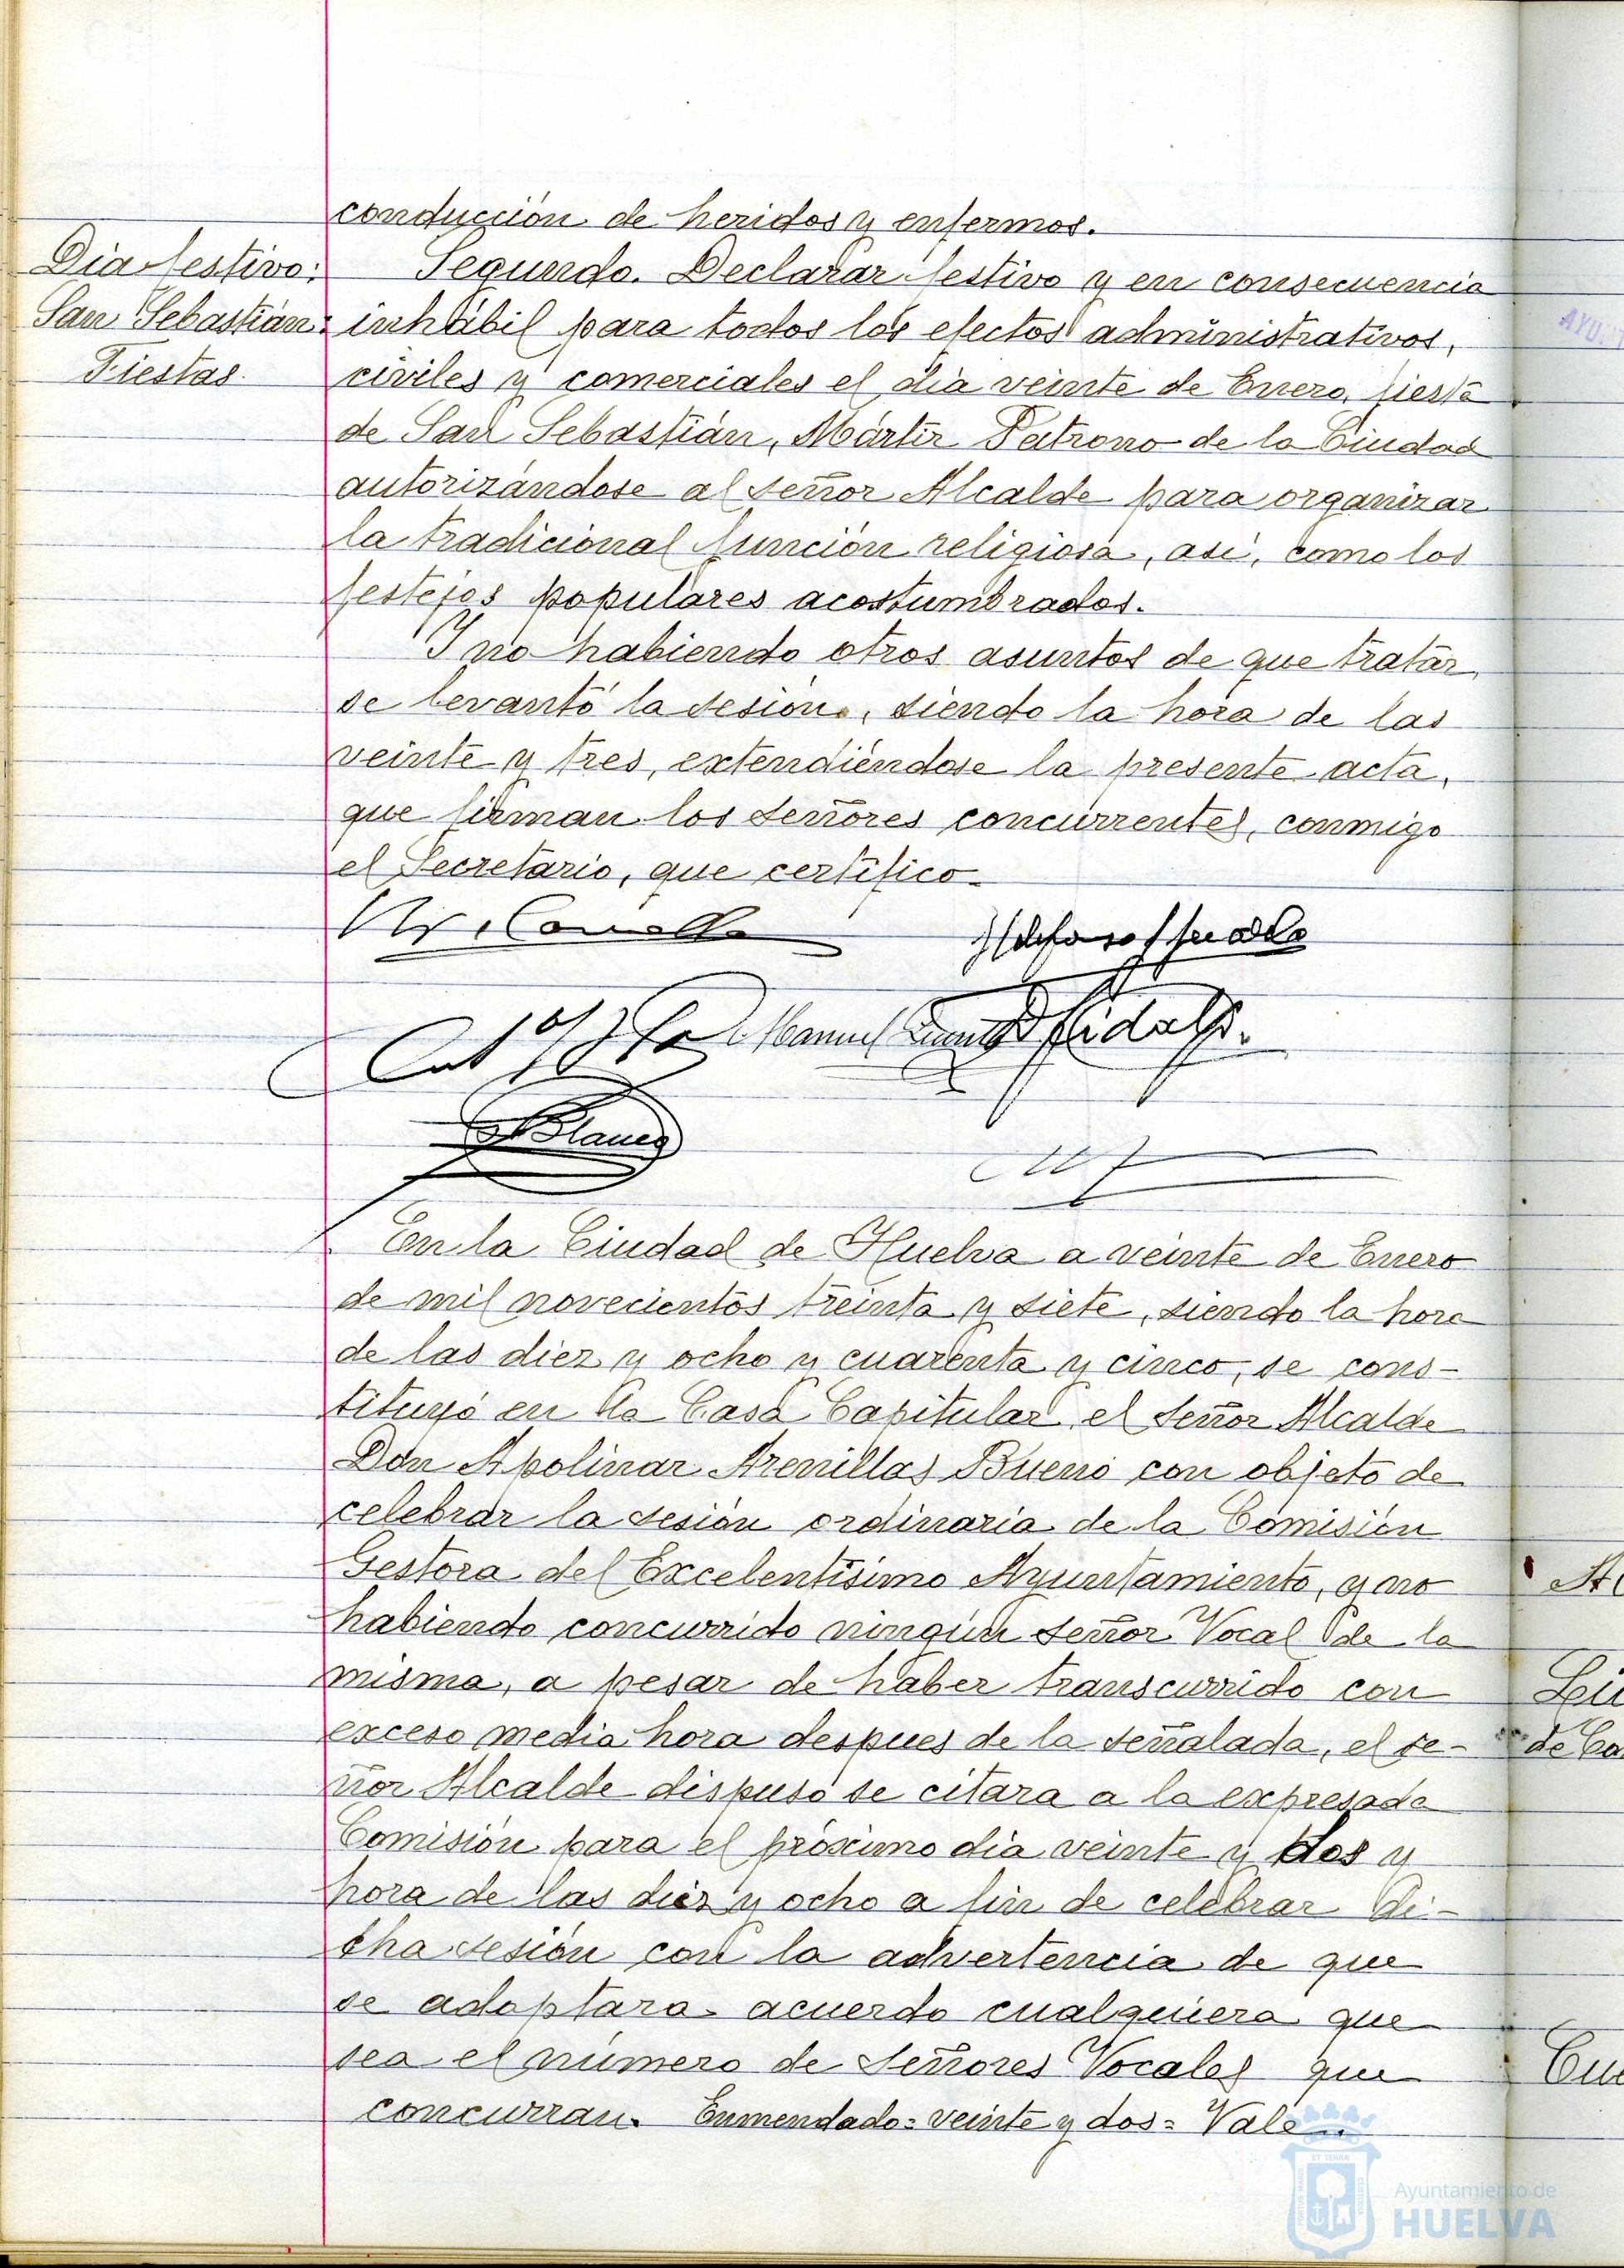 conducción de heridos y enfermos.
Dia festivo:
San Sebastián:
Fiestas.
Segundo. Declarar festivo y en consecuencia
inhábil para todos los efectos administrativos,
civiles y comerciales el día veinte de Enero, fiesta
de San Sebastián, Mártir Patrono de la Ciudad
autorizándose al señor Alcalde para organizar
la tradicional función religiosa, así, como los
festejos populares acostumbrados.
Y no habiendo otros asuntos de que tratar,
se levantó la sesión, siendo la hora de las
veinte y tres, extendiéndose la presente acta,
que firman los señores concurrentes, conmigo
el Secretario, que certifico.
Manuel
Blanco
En la Ciudad de Huelva a veinte de Enero
de mil novecientos treinta y siete, siendo la hora
de las diez y ocho y cuarenta y cinco, se cons-
tituyó en la Casa Capitular el señor Alcalde
Don Apolinar Arenillas Bueno con objeto de
celebrar la sesión ordinaria de la Comisión
Gestora del Excelentísimo Ayuntamiento, y no
habiendo concurrido ningún señor Vocal de la
misma, a pesar de haber transcurrido con
exceso media hora despues de la señalada, el se-
ñor Alcalde dispuso se citara a la expresada
Comisión para el próximo día veinte y dos y
hora de las diez y ocho a fin de celebrar di-
cha sesión con la advertencia de que
se adoptara acuerdo cualquiera que
sea el número de Señores Vocales que
concurran. Enmendado = veinte y dos = Vale
Ayuntamiento de
HUELVA